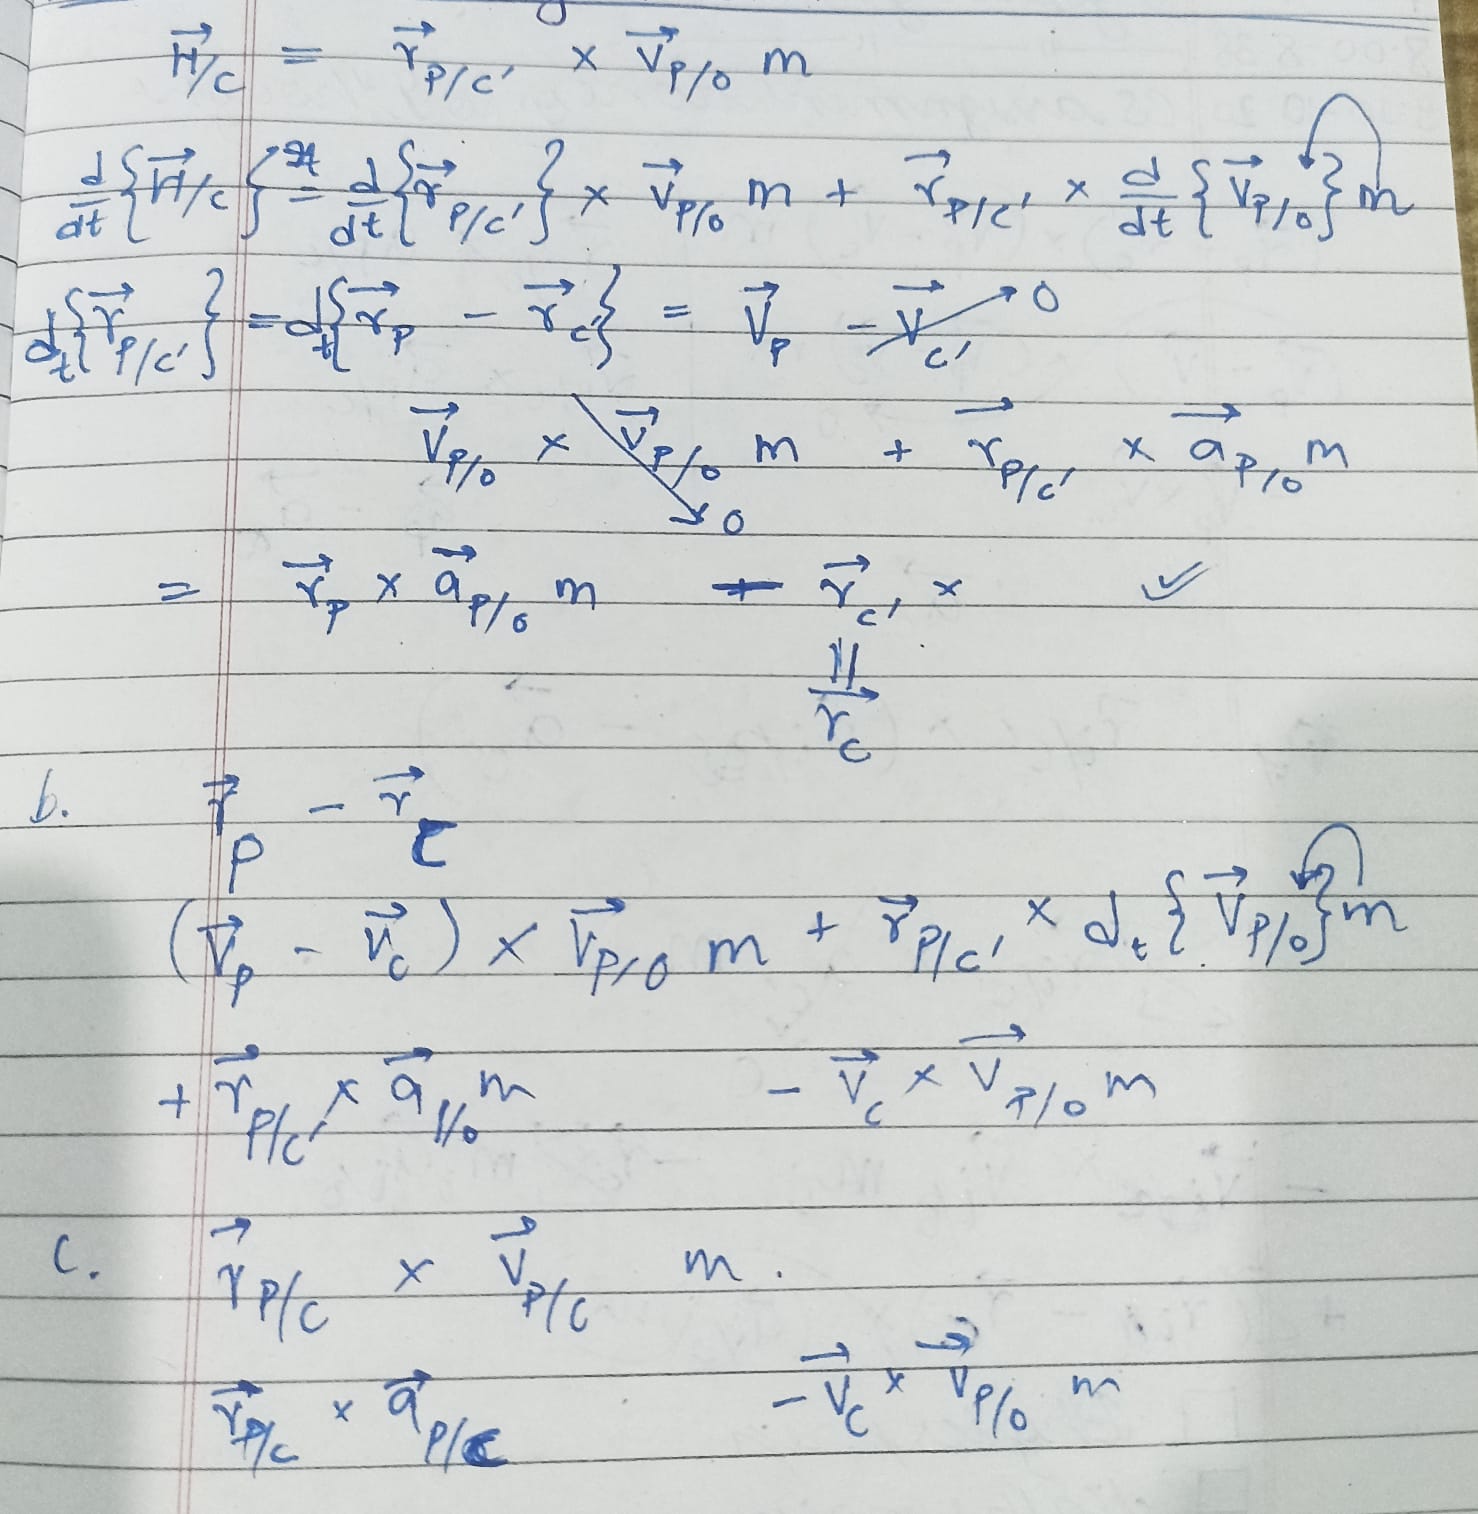 H⃗/C = r⃗P/C' × V⃗P/O m
d/dt{H⃗/C} = d/dt{r⃗P/C'} × V⃗P/O m + r⃗P/C' × d/dt{V⃗P/O}m
dt{r⃗P/C'} = dt{r⃗P - r⃗C'} = V⃗P - V⃗C' → 0
V⃗P/O × V⃗P/O m + r⃗P/C' × a⃗P/O m
→ 0
= r⃗P × a⃗P/O m - r⃗C' × ✓
||
r⃗C
b. r⃗P - r⃗C
(V⃗P - V⃗C) × V⃗P/O m + r⃗P/C' × dt{V⃗P/O}m
+ r⃗P/C' × a⃗P/O m - V⃗C × V⃗P/O m
C. r⃗P/C × V⃗P/C m.
r⃗P/C × a⃗P/C - V⃗C × V⃗P/O m